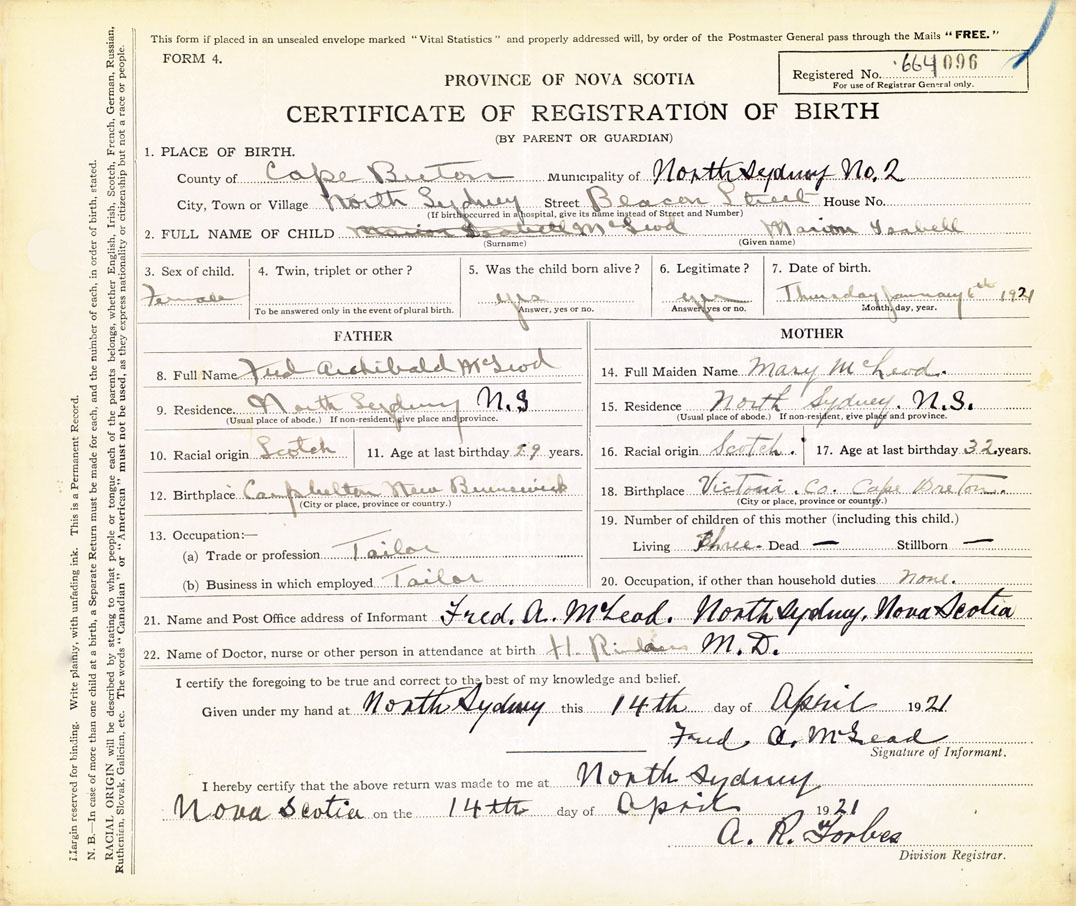 This form if placed in an unsealed envelope marked "Vital Statistics" and properly addressed will, by order of the Postmaster General pass through the Mails "FREE."
FORM 4.
Registered No. 664096
For use of Registrar General only.
PROVINCE OF NOVA SCOTIA
CERTIFICATE OF REGISTRATION OF BIRTH
(BY PARENT OR GUARDIAN)
1. PLACE OF BIRTH.
County of Cape Breton Municipality of North Sydney No. 2
City, Town or Village North Sydney Street Beacon Street House No.
(If birth occurred in a hospital, give its name instead of Street and Number)
2. FULL NAME OF CHILD Marion Isabell McLeod Marion Isabell
(Surname) (Given name)
3. Sex of child. 4. Twin, triplet or other? 5. Was the child born alive? 6. Legitimate? 7. Date of birth.
Female yes yes Thursday January 6th 1921
To be answered only in the event of plural birth. Answer, yes or no. Answer, yes or no. Month, day, year.
FATHER
8. Full Name Fred Archibald McLeod
9. Residence. North Sydney N.S
(Usual place of abode.) If non-resident, give place and province.
10. Racial origin Scotch 11. Age at last birthday 29 years.
12. Birthplace Campbelton New Brunswick
(City or place, province or country.)
13. Occupation:—
(a) Trade or profession Tailor
(b) Business in which employed Tailor
MOTHER
14. Full Maiden Name Mary McLeod.
15. Residence North Sydney. N.S.
(Usual place of abode.) If non-resident, give place and province.
16. Racial origin Scotch. 17. Age at last birthday 32 years.
18. Birthplace Victoria. Co. Cape Breton.
(City or place, province or country.)
19. Number of children of this mother (including this child.)
Living Three- Dead — Stillborn —
20. Occupation, if other than household duties none.
21. Name and Post Office address of Informant Fred. A. McLeod. North Sydney, Nova Scotia
22. Name of Doctor, nurse or other person in attendance at birth H. M.D.
I certify the foregoing to be true and correct to the best of my knowledge and belief.
Given under my hand at North Sydney this 14th day of April 1921
Fred A. McLeod
Signature of Informant.
I hereby certify that the above return was made to me at North Sydney
Nova Scotia on the 14th day of April 1921
A. R. Forbes
Division Registrar.
Margin reserved for binding. Write plainly, with unfading ink. This is a Permanent Record.
N. B.—In case of more than one child at a birth, a Separate Return must be made for each, and the number of each, in order of birth, stated.
RACIAL ORIGIN will be described by stating to what people or tongue each of the parents belongs, whether English, Irish, Scotch, French, German, Russian,
Ruthenian, Slovak, Galician, etc. The words "Canadian" or "American" must not be used, as they express nationality or citizenship but not a race or people.